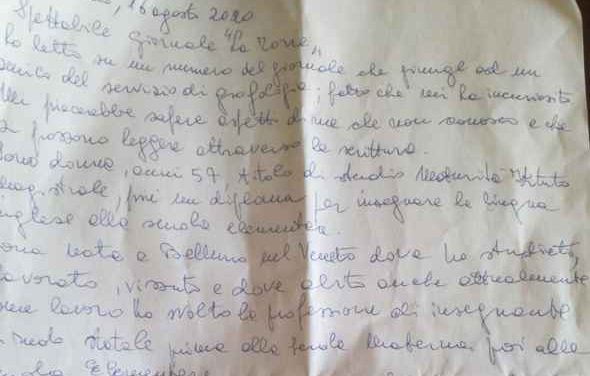 , 16 agosto 2020
Spettabile giornale "La Torre"
Ho letto su un numero del giornale che giunge ad un
amico del servizio di grafologia; fatto che mi ha incuriosito
piacerebbe sapere aspetti di me che non conosco e che
si possono leggere attraverso la scrittura.
Sono donna, anni 57, titolo di studio Maturità Istituto
magistrale, poi un diploma per insegnare la lingua
inglese alla scuola elementare.
Sono nata a Belluno nel Veneto dove ho studiato,
lavorato, vissuto e dove abito anche attualmente
lavoro ho svolto la professione di insegnante
statale prima alla scuola materna, poi alla
Elementare